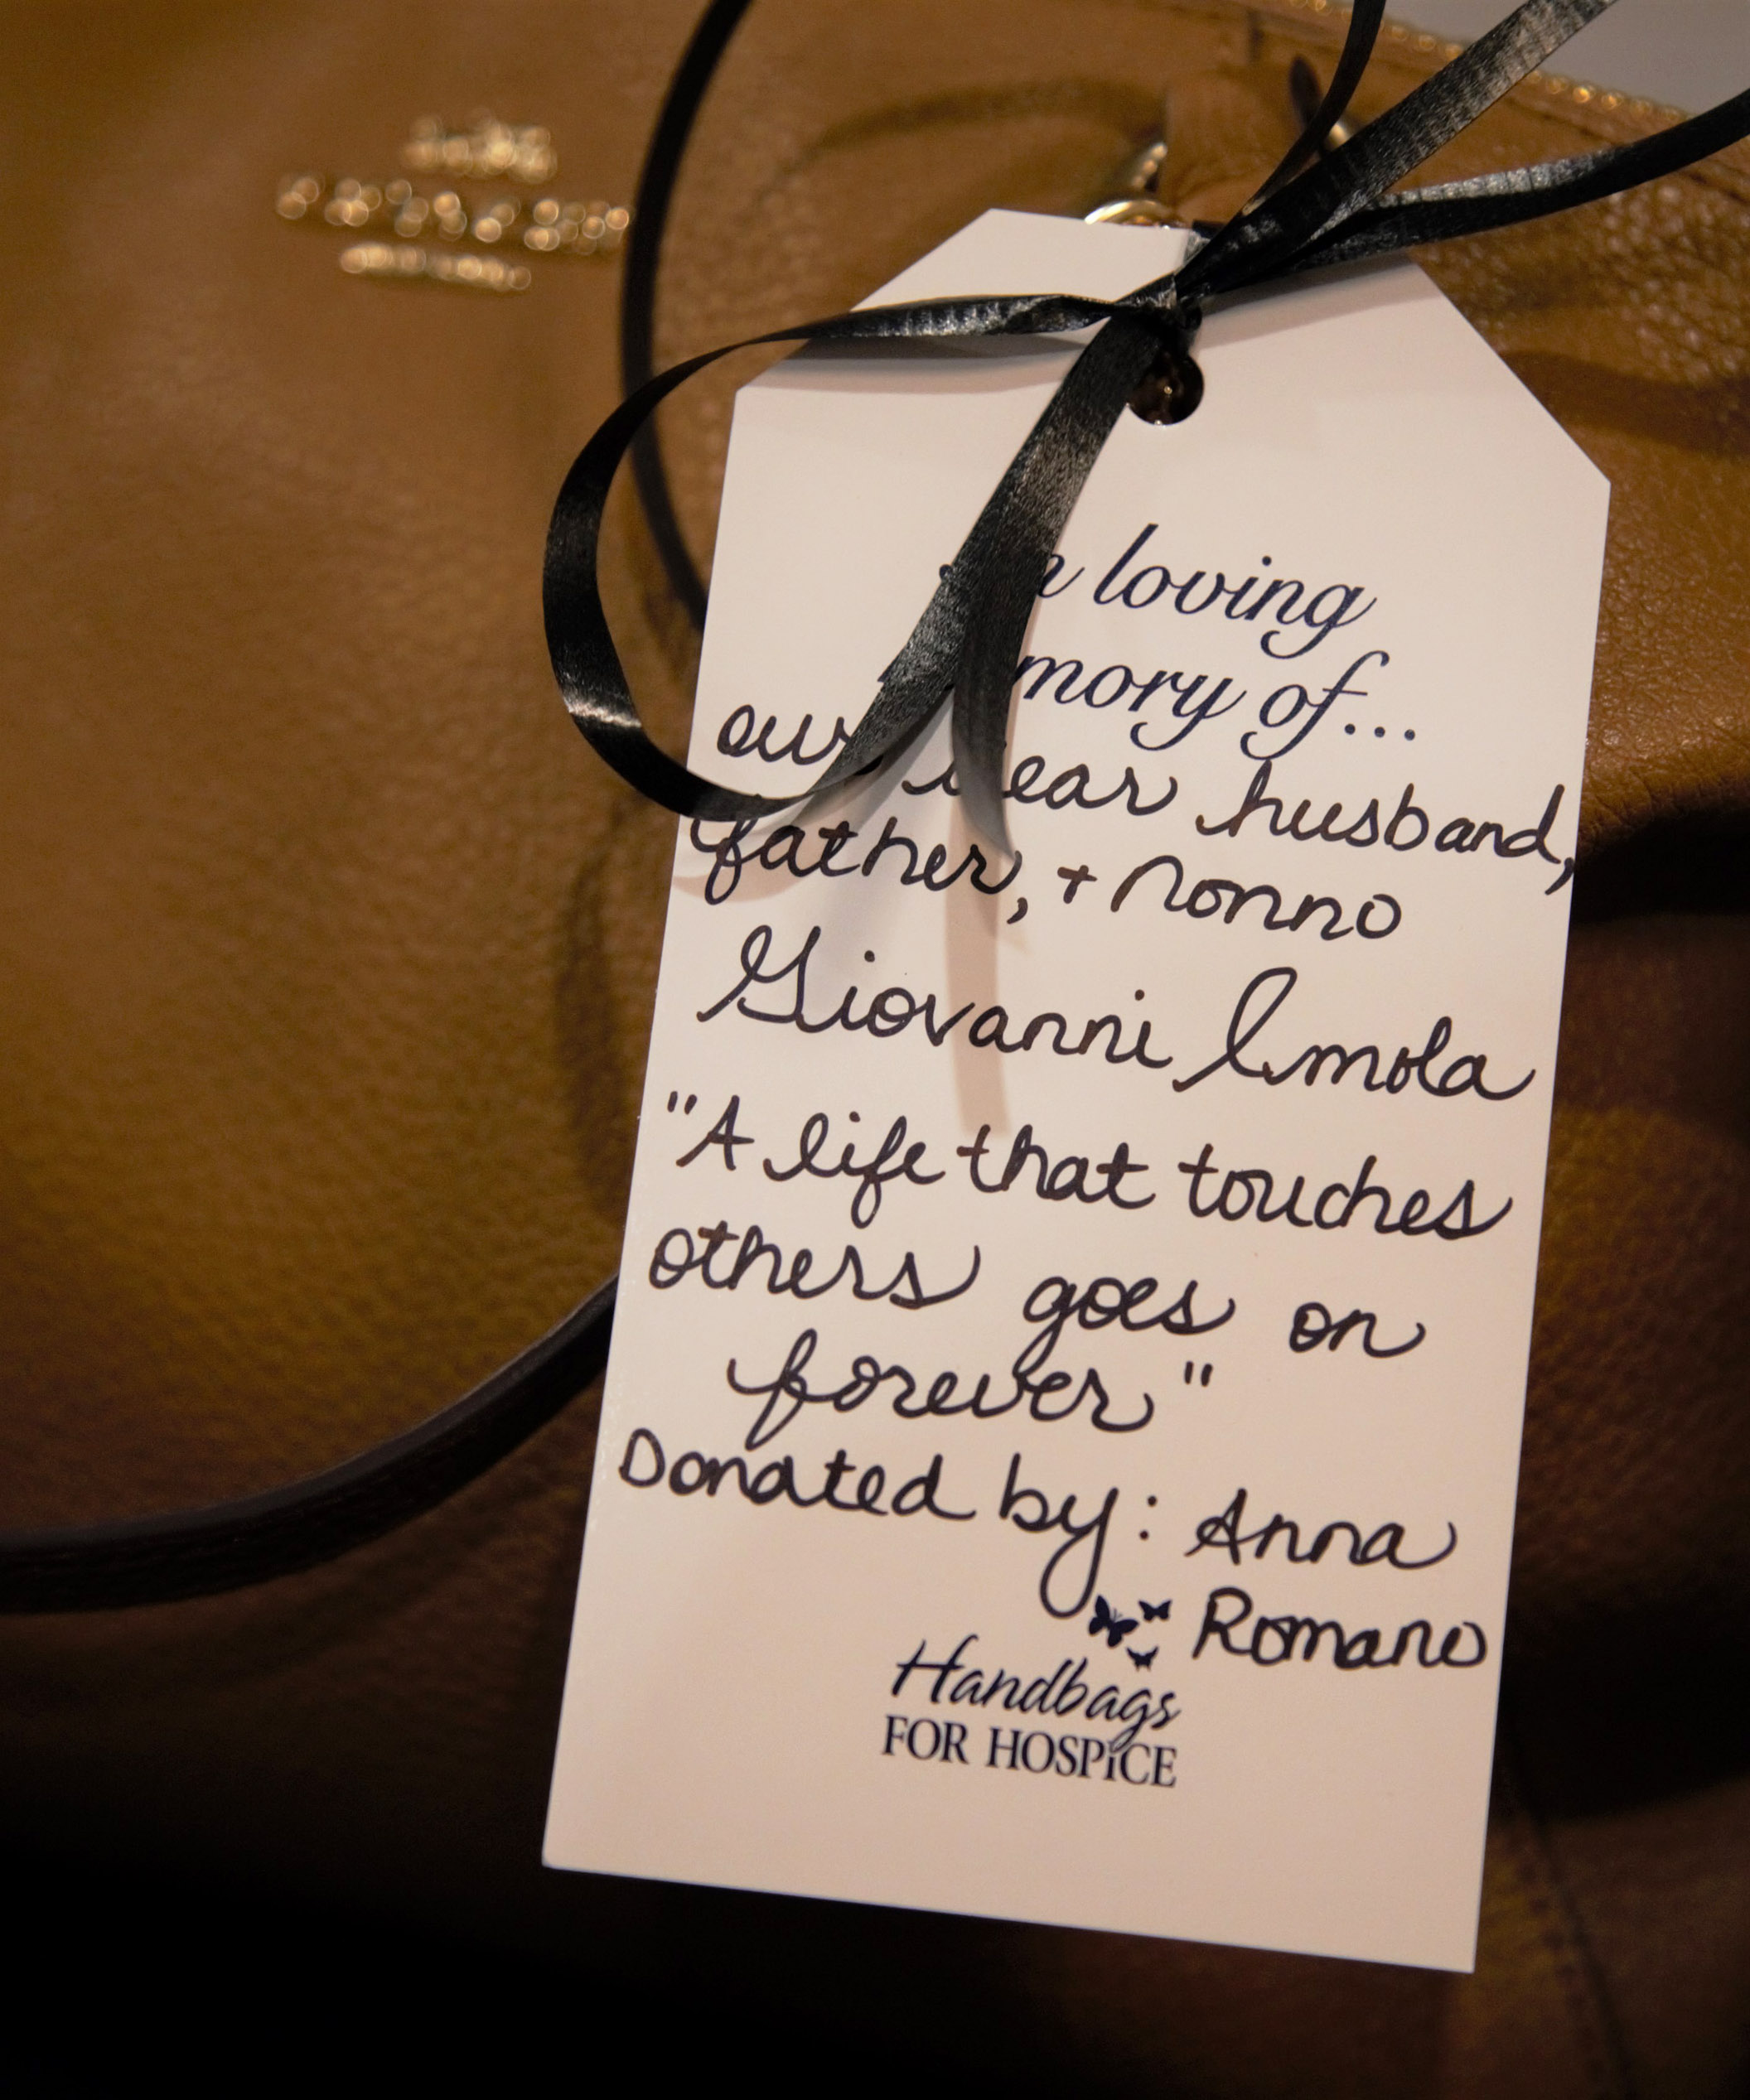 n loving
mory of...
our dear husband,
father, + Nonno
Giovanni Imola
"A life that touches
others goes on
forever"
Donated by: Anna
Romano
Handbags
FOR HOSPiCE